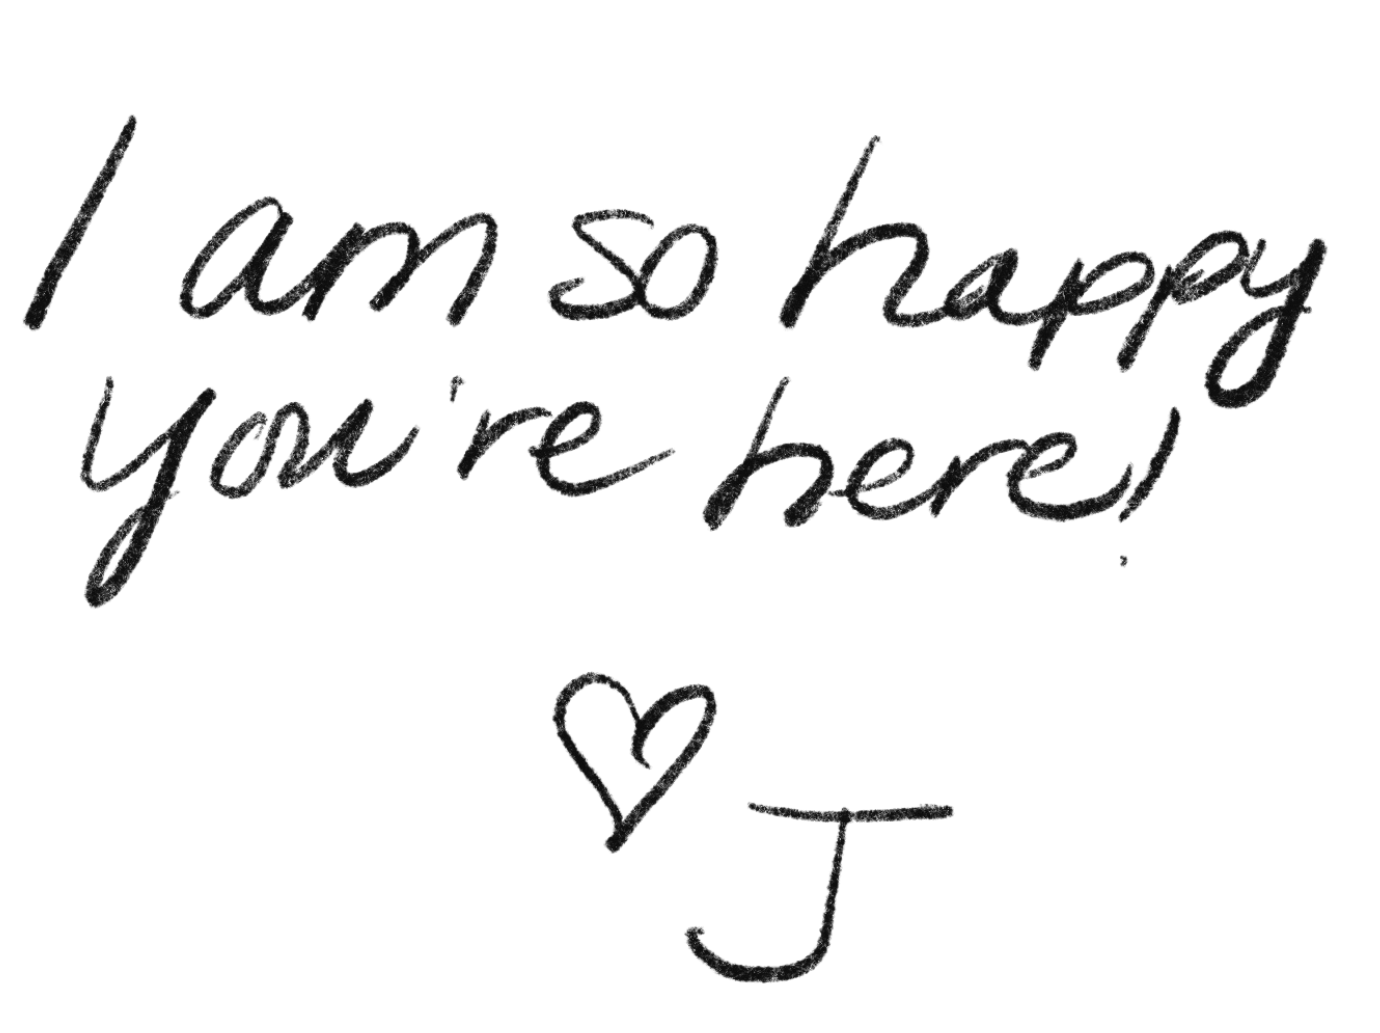 I am so happy
you're here!
♡ J